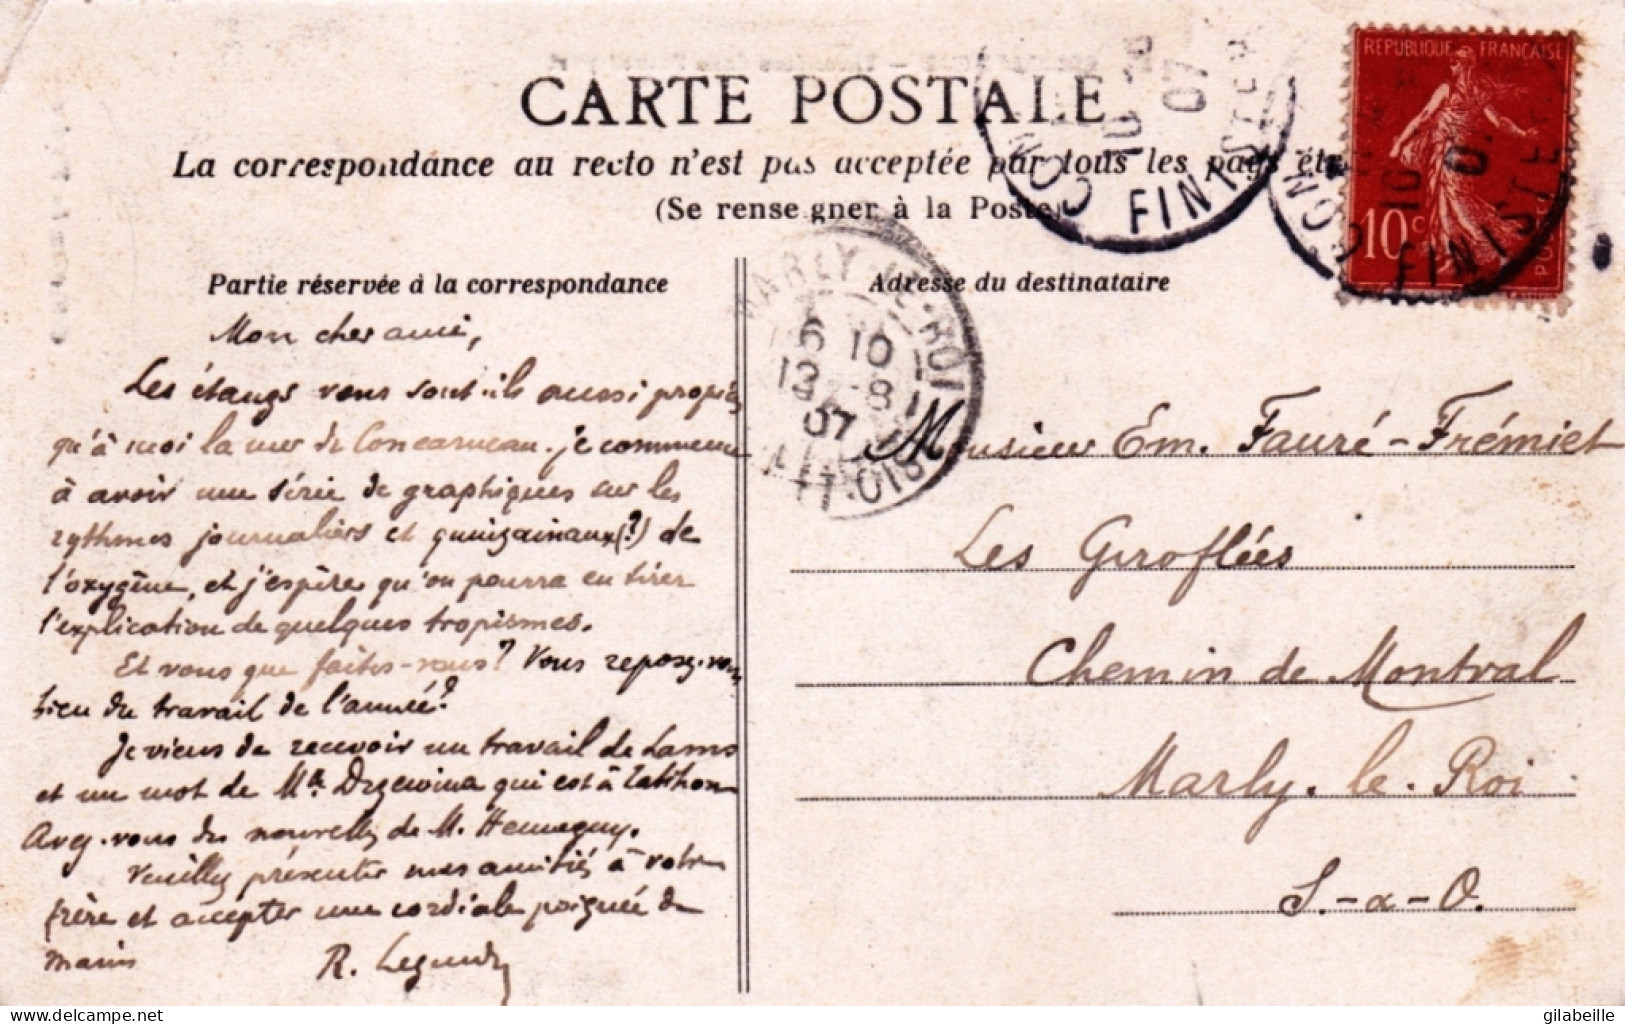 CARTE POSTALE
La correspondance au recto n'est pas acceptée par tous les pays étr
(Se renseigner à la Poste)
REPUBLIQUE FRANÇAISE
10c
POSTES
FINISTERE
10
07
FINISTERE
10
MARLY-LE-ROI
6 10
12 8
07
Partie réservée à la correspondance
Adresse du destinataire
Mon cher ami,
Les étangs vous sont-ils aussi propices
qu'à moi la mer de Concarneau. je commence
à avoir une série de graphiques sur les
rythmes journaliers et quinzainaux (?) de
l'oxygène, et j'espère qu'on pourra en tirer
l'explication de quelques tropismes.
Et vous que faites-vous? Vous reposez-vous
bien du travail de l'année?
Je viens de recevoir un travail de Lams
et un mot de Mlle Drzewina qui est à Tatihou
Avez-vous des nouvelles de M. Henneguy.
Veuillez présenter mes amitiés à votre
frère et accepter une cordiale poignée de
mains
R. Legendre
Monsieur Em. Fauré-Frémiet
Les Giroflées
Chemin de Montval
Marly-le-Roi
S.-&-O.
delcampe.net
gilabeille